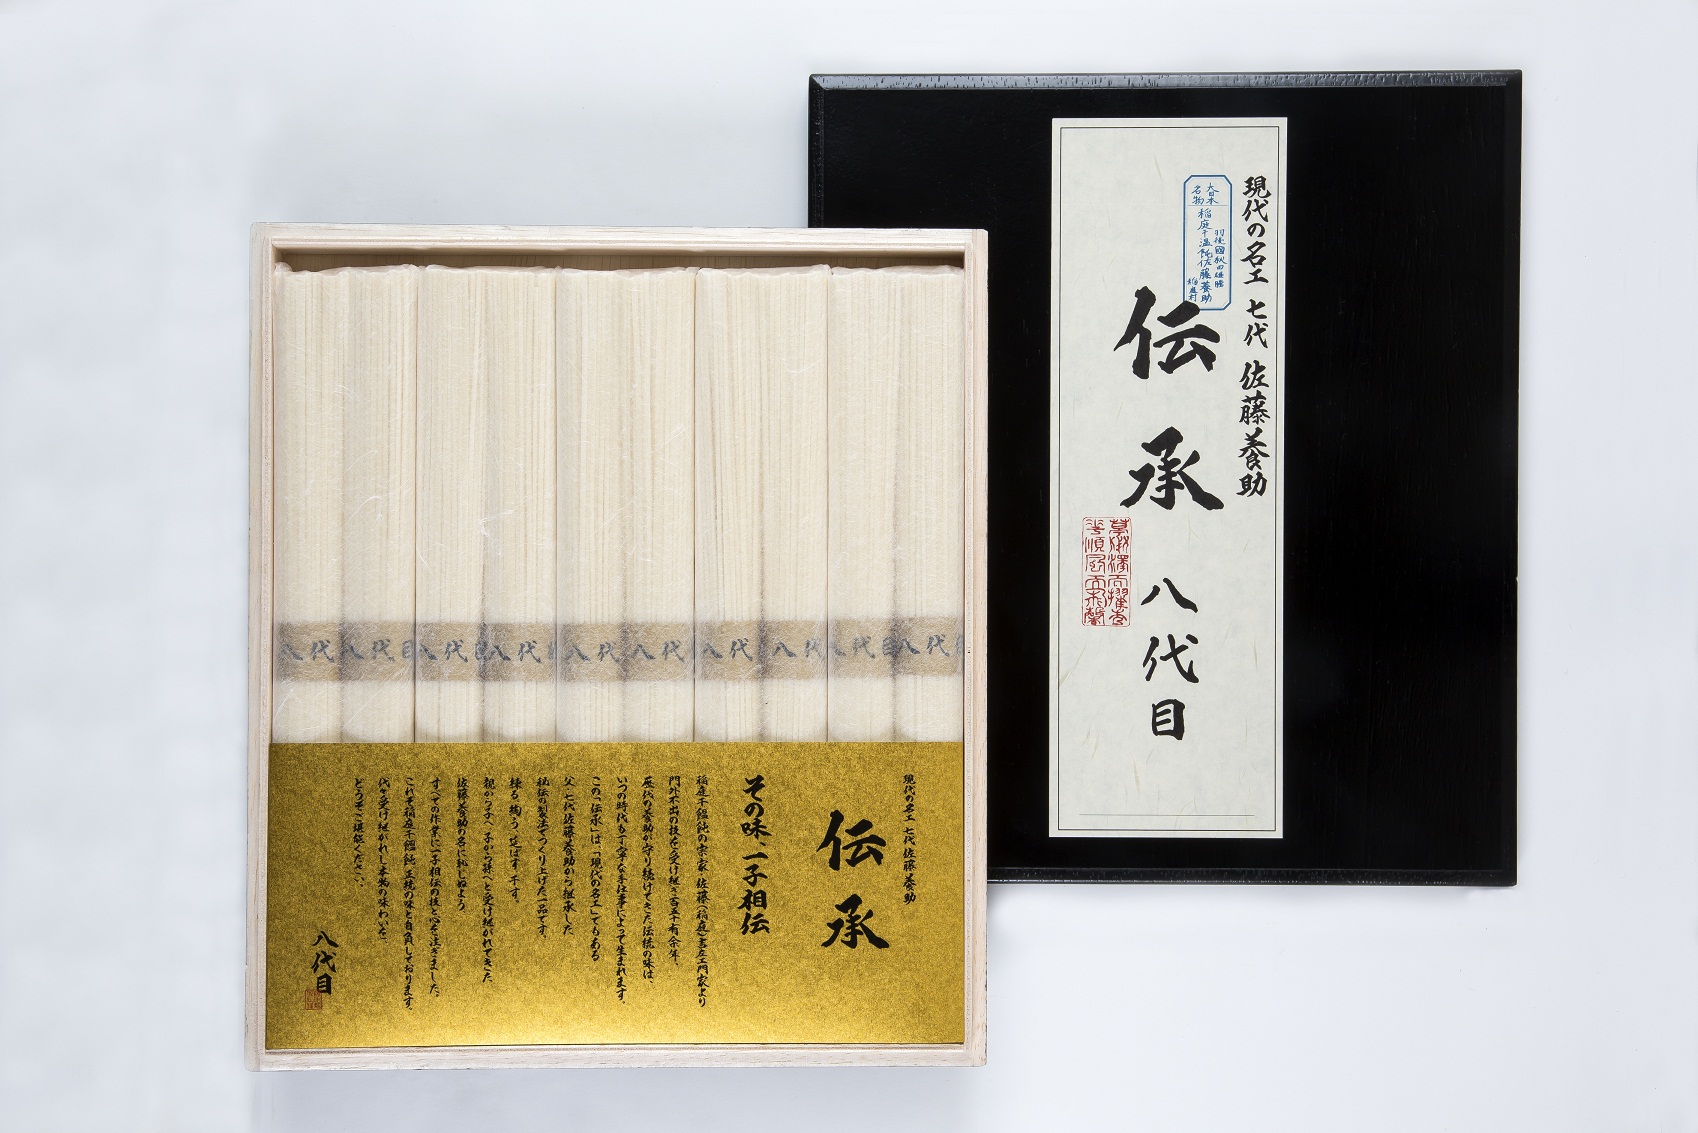 現代の名工 七代 佐藤養助
大日本
名物
稲庭干温飩佐藤養助
稲庭村
伝承 八代目
八代
八代目
八代目
八代目
八代
八代
八代
八代
八代目
八代
現代の名工 七代 佐藤養助
伝承
その味、一子相伝
稲庭干饂飩の宗家 佐藤(稲庭)吉左エ門家より
門外不出の技を受け継ぎ百五十有余年、
歴代の養助が守り続けてきた伝統の味は、
いつの時代も丁寧な手仕事によって生まれます。
この「伝承」は、「現代の名工」でもある
父 七代佐藤養助から継承した
秘伝の製法でつくり上げた一品です。
練る、綯う、延ばす、干す。
親から子へ、子から孫へと受け継がれてきた
佐藤養助の名に恥じぬよう、
すべての作業に一子相伝の技と心を注ぎました。
これぞ稲庭干饂飩 正統の味と自負しております。
代々受け継がれし本物の味わいを、
どうぞご堪能ください。
八代目